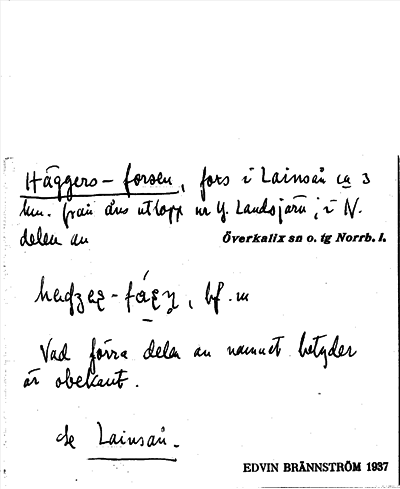 Häggers-forsen, fors i Lainsån ca 3
km. från åns utlopp ur Y. Landsjärv, i N.
delen av
Överkalix sn o. tg Norrb. l.
bf. m
Vad förra delen av namnet betyder
är obekant.
se Lainsån.
EDVIN BRÄNNSTRÖM 1937